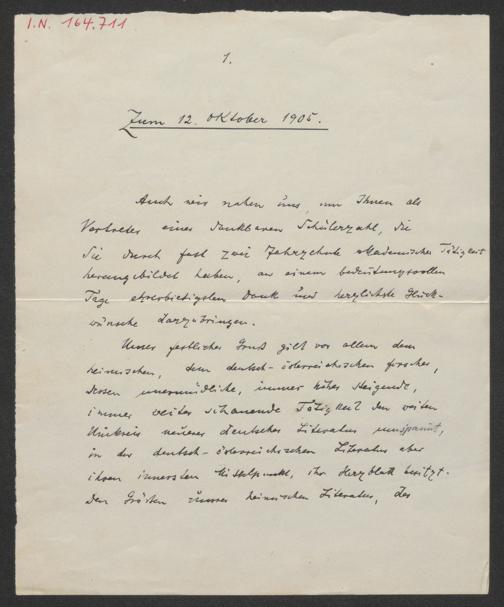 I.N. 164.711
1.
Zum 12. Oktober 1905.
Auch wir nahen uns, um Ihnen als
Vertreter einer dankbaren Schülerzahl, die
Sie durch fast zwei Jahrzehnte akademischer Tätigkeit
herangebildet haben, an einem bedeutungsvollen
Tage ehrerbietigsten Dank und herzlichste Glück-
wünsche darzubringen.
Unser festlicher Gruß gilt vor allem dem
heimischen, dem deutsch-österreichischen Forscher,
dessen unermüdliche, immer höher steigende,
immer weiter schauende Tätigkeit den weiten
Umkreis neuerer deutscher Literatur umspannt,
in der deutsch-österreichischen Literatur aber
ihren innersten Mittelpunkt, ihr Herzblatt besitzt.
Den Größten unserer heimischen Literatur, des